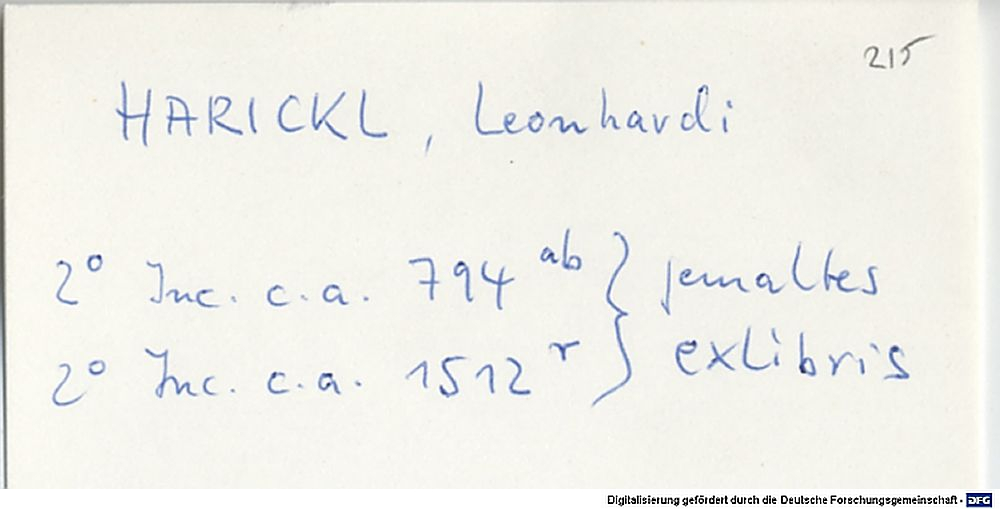 215
HARICKL, Leonhardi
2° Inc. c.a. 794 ab } gemaltes
2° Inc. c.a. 1512 r } exlibris
Digitalisierung gefördert durch die Deutsche Forschungsgemeinschaft - DFG